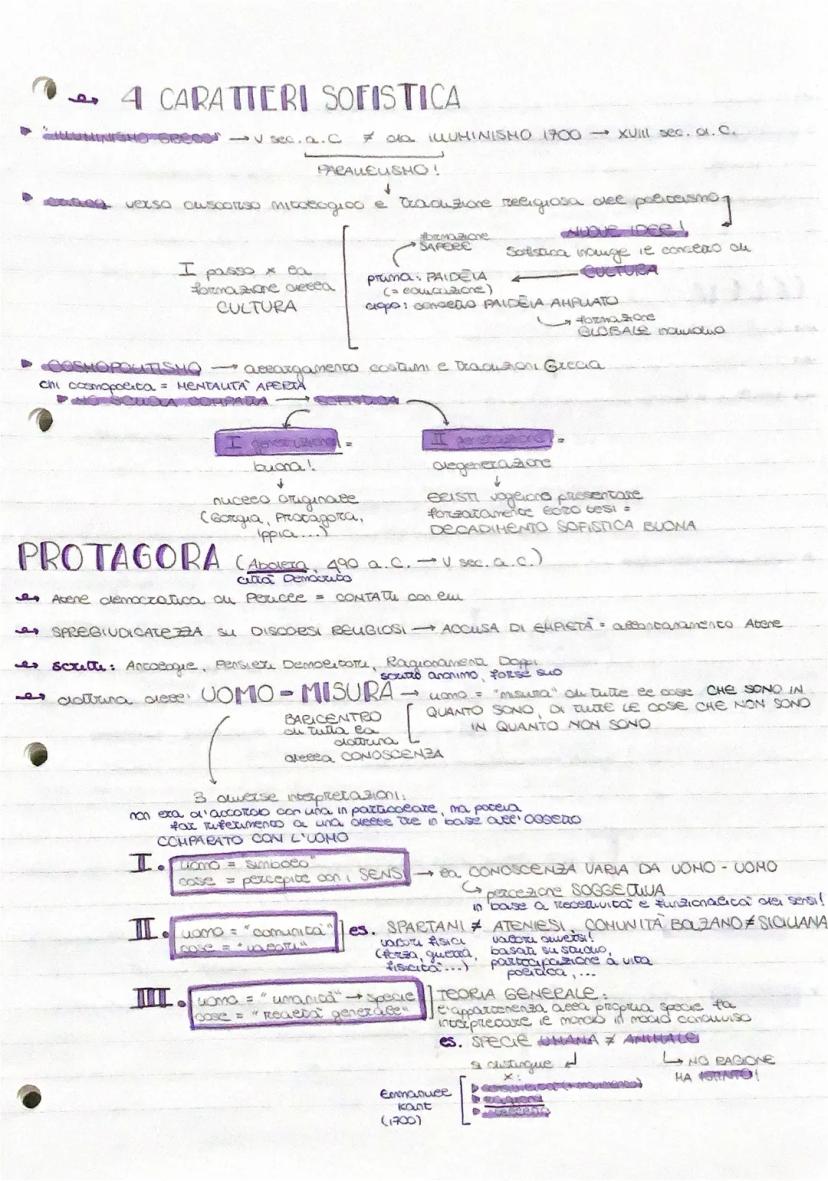 4 CARATTERI SOFISTICA
"ILLUMINISMO GRECO" → V sec. a.C ≠ da ILLUMINISMO 1700 → XVIII sec. d.C.
PARALLELISMO!
critica verso discorso mitologico e tradizione religiosa del politeismo
NUOVE IDEE!
Sofistica introduce il concetto di
CULTURA
formazione
SAPERE
I passo x la
formazione della
CULTURA
prima: PAIDEIA
(= educazione)
dopo: concetto PAIDEIA AMPLIATO
formazione
GLOBALE individuo
COSMOPOLITISMO → allargamento costumi e tradizioni Grecia
chi cosmopolita = MENTALITÀ APERTA
NO SCUOLA COMPATTA → SOFISTICA
I generazione =
buona!
nucleo originale
(Gorgia, Protagora,
Ippia...)
II generazione =
degenerazione
ERISTI vogliono presentare
forzatamente loro tesi =
DECADIMENTO SOFISTICA BUONA
PROTAGORA (Abdera, 490 a.C. → V sec. a.C.)
città Democrito
Atene democratica di Pericle = CONTATTI con lui
SPREGIUDICATEZZA su DISCORSI RELIGIOSI → ACCUSA DI EMPIETÀ = allontanamento Atene
scritti: Antologie, Pensieri Demolitori, Ragionamenti Doppi
scritto anonimo, forse suo
dottrina dell' UOMO = MISURA → uomo = "misura" di tutte le cose CHE SONO IN
QUANTO SONO, DI TUTTE LE COSE CHE NON SONO
IN QUANTO NON SONO
BARICENTRO
di tutta la
dottrina
della CONOSCENZA
3 diverse interpretazioni:
non era d'accordo con una in particolare, ma poteva
far riferimento a una delle tre in base all'OGGETTO
COMPARATO CON L'UOMO
I. uomo = "simbolo"
cose = percepite con i SENSI
→ la CONOSCENZA VARIA DA UOMO - UOMO
percezione SOGGETTIVA
in base a recettività e funzionalità dei sensi!
II. uomo = "comunità"
cose = "valori"
es. SPARTANI ≠ ATENIESI, COMUNITÀ BOLZANO ≠ SICILIANA
valori fisici
(forza, guerra,
fisicità...)
valori diversi!
basati su studio,
partecipazione a vita
politica,...
III. uomo = "umanità" → specie
cose = "realtà generale"
TEORIA GENERALE:
l'appartenenza alla propria specie fa
interpretare il mondo in modo condiviso
es. SPECIE UMANA ≠ ANIMALE
si distingue
x:
NO RAGIONE
HA ISTINTO!
Emmanuel
Kant
(1700)